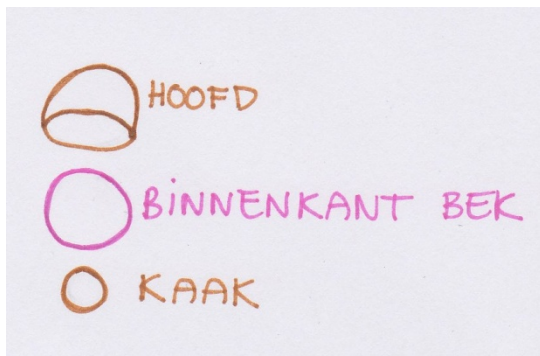 HOOFD
BINNENKANT BEK
KAAK